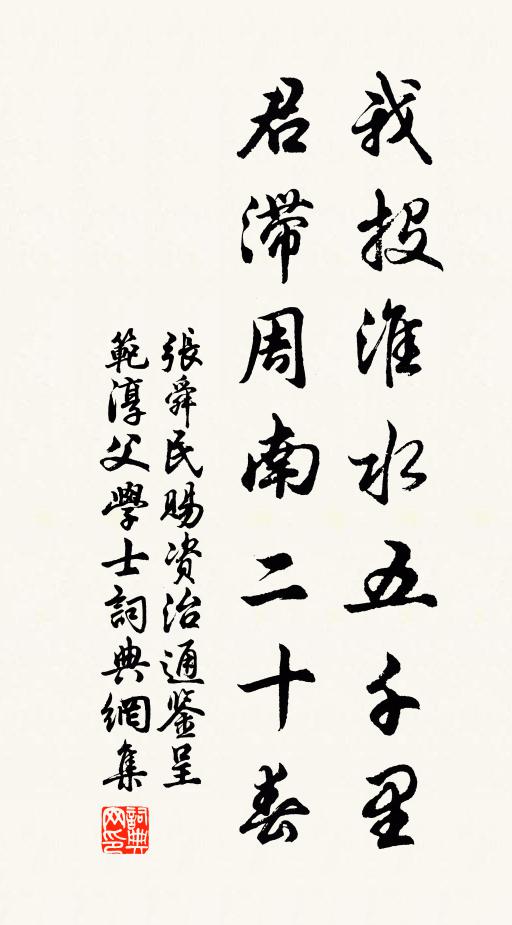 我投淮水五千里
君滞周南二十春
張舜民賜资治通鉴呈
範淳父學士詞典網集
詞典網印